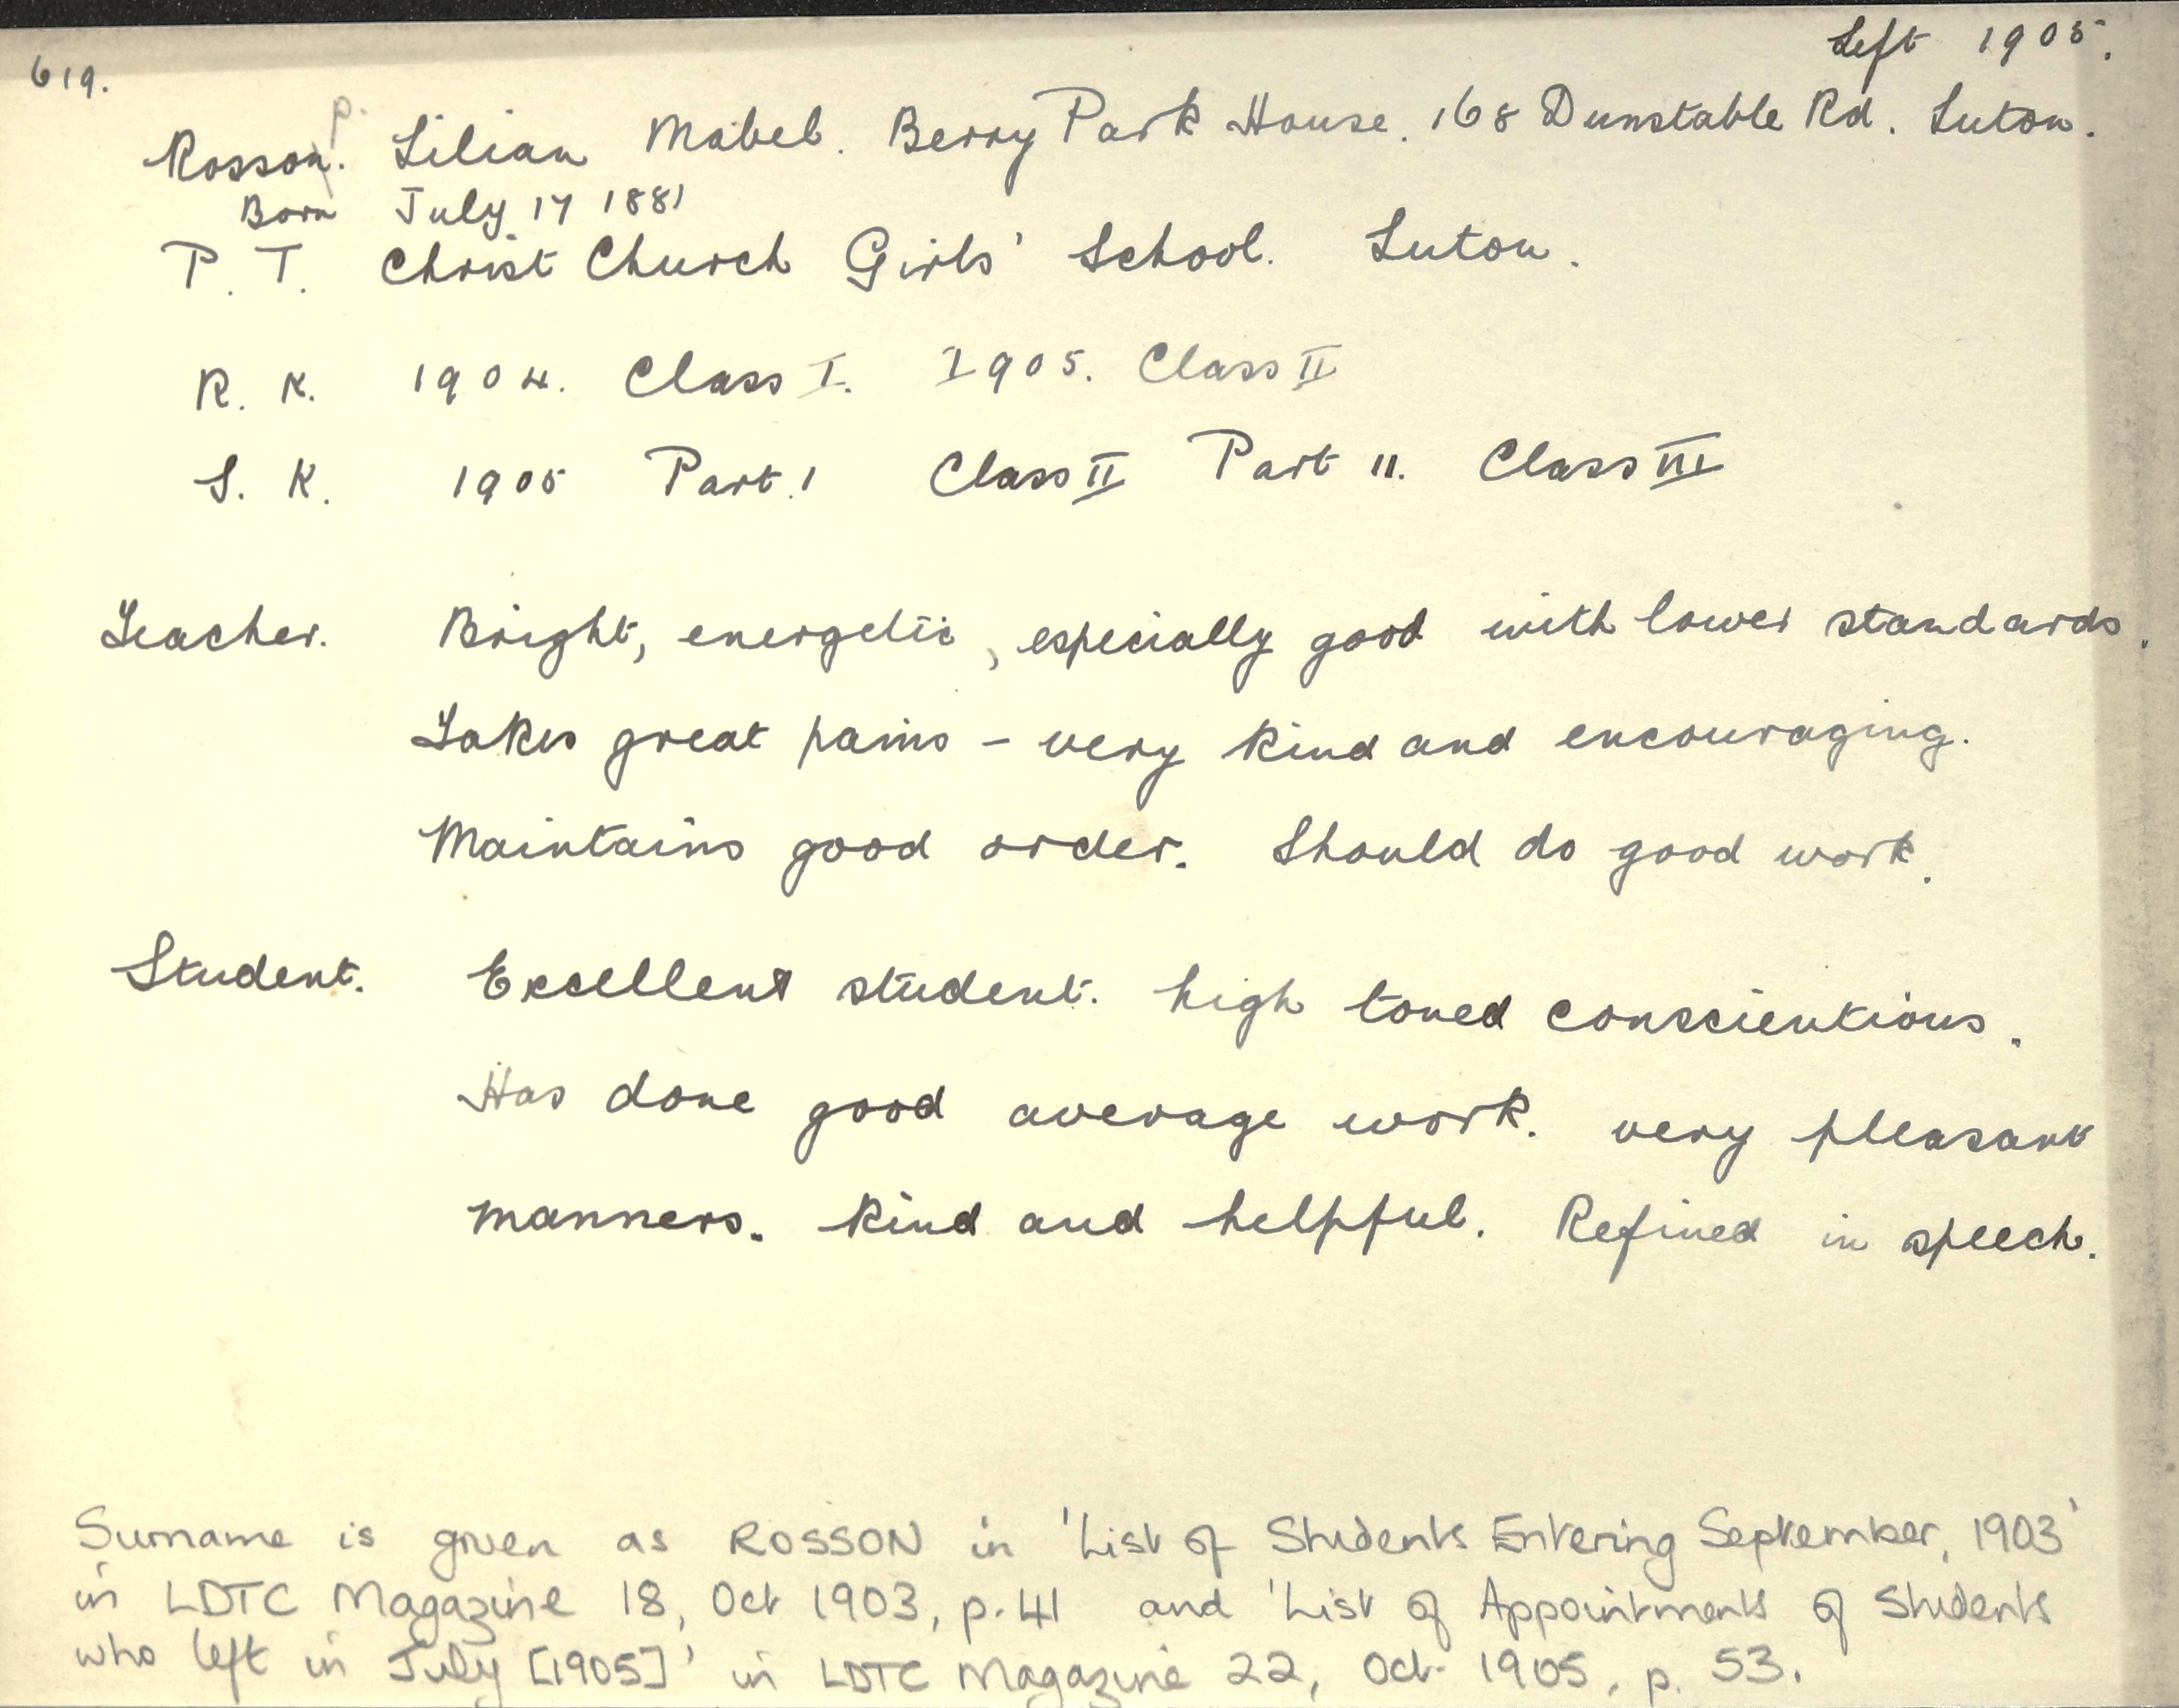 Left 1905.
619.
p.
Rosson. Lilian Mabel. Berry Park House. 168 Dunstable Rd. Luton.
Born July 17 1881
P. T. Christ Church Girls' School. Luton.
R. K. 1904. Class I. 1905. Class II
S. K. 1905 Part. 1 Class II Part 11. Class III
Teacher. Bright, energetic, especially good with lower standards.
Takes great pains - very kind and encouraging.
Maintains good order. Should do good work.
Student. Excellent student. high toned conscientious.
Has done good average work. very pleasant
manners. kind and helpful. Refined in speech.
Surname is given as ROSSON in 'List of Students Entering September, 1903'
in LDTC Magazine 18, Oct 1903, p. 41 and 'List of Appointments of Students
who left in July [1905]' in LDTC Magazine 22, Oct. 1905, p. 53.